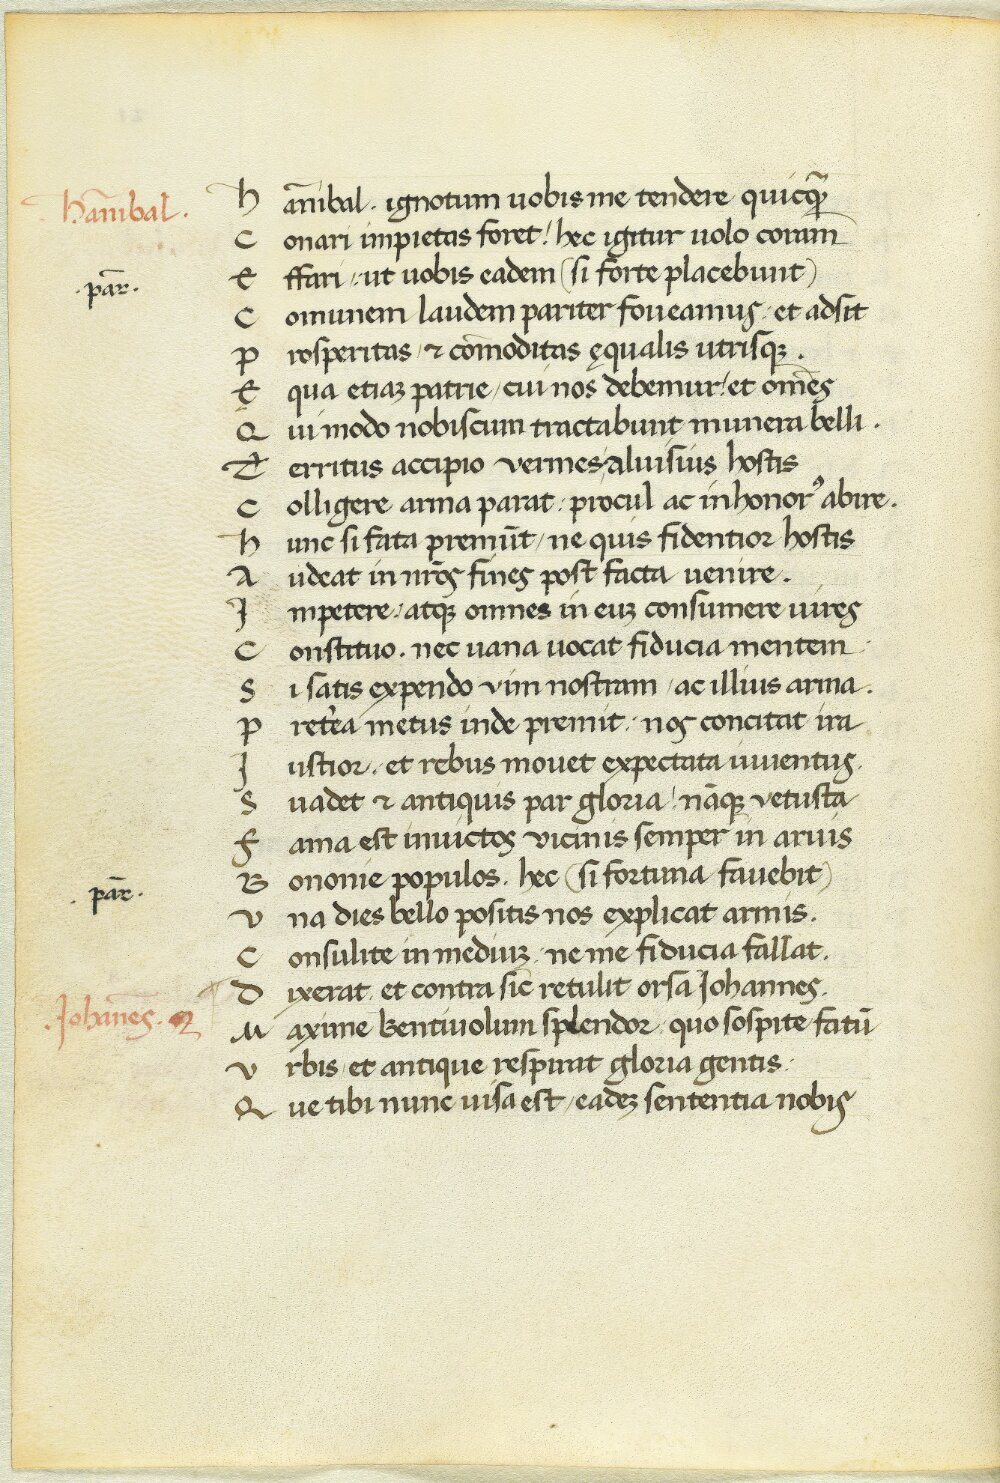 Hānibal.
H ānibal. ignotum uobis me tendere quicq̄
C onari impietas foret! hec igitur uolo coram
par̄.
E ffari / ut uobis eadem (si forte placebunt)
C omunem laudem pariter foueamus / et adsit
P rosperitas / & com̄oditas ęqualis utrisqꝫ.
E qua etiaꝫ patrie / cui nos debemur! et om̄es
Q ui modo nobiscum tractabunt munera belli.
T erritus accipio vermes / aluisius hostis
C olligere arma parat / procul ac inhonorꝰ abire.
H unc si fata premūt / ne quis fidentior hostis
A udeat in nr̄os fines post facta uenire.
I mpetere / atqꝫ omnes in euꝫ consumere uires
C onstituo. nec uana uocat fiducia mentem
S i satis expendo vim nostram / ac illius arma.
P retēa metus inde premit / nos concitat ira
I ustior. et rebus mouet expectata iuuentus.
S uadet & antiquis par gloria! nāqꝫ vetusta
F ama est inuictos vicinis semper in aruis
par̄.
B ononie populos. hec (si fortuna fauebit)
V na dies bello positis nos explicat armis.
C onsulite in mediuꝫ / ne me fiducia fallat.
D ixerat. et contra sic retulit orsa Johannes.
Johanēs.
M axime Bentiuolum splendor / quo sospite fatū
V rbis / et antique respirat gloria gentis.
Q ue tibi nunc uisa est / eadeꝫ sententia nobis